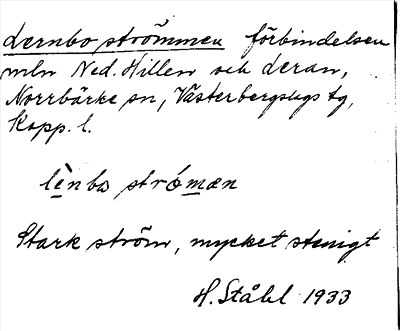 Lernbo strömmen förbindelsen
mln Ned. Hillen och Leran,
Norrbärke sn, Västerbergslags tg,
Kopp. l.
lènbo strömæn
Stark ström, mycket stenigt
H. Ståhl 1933